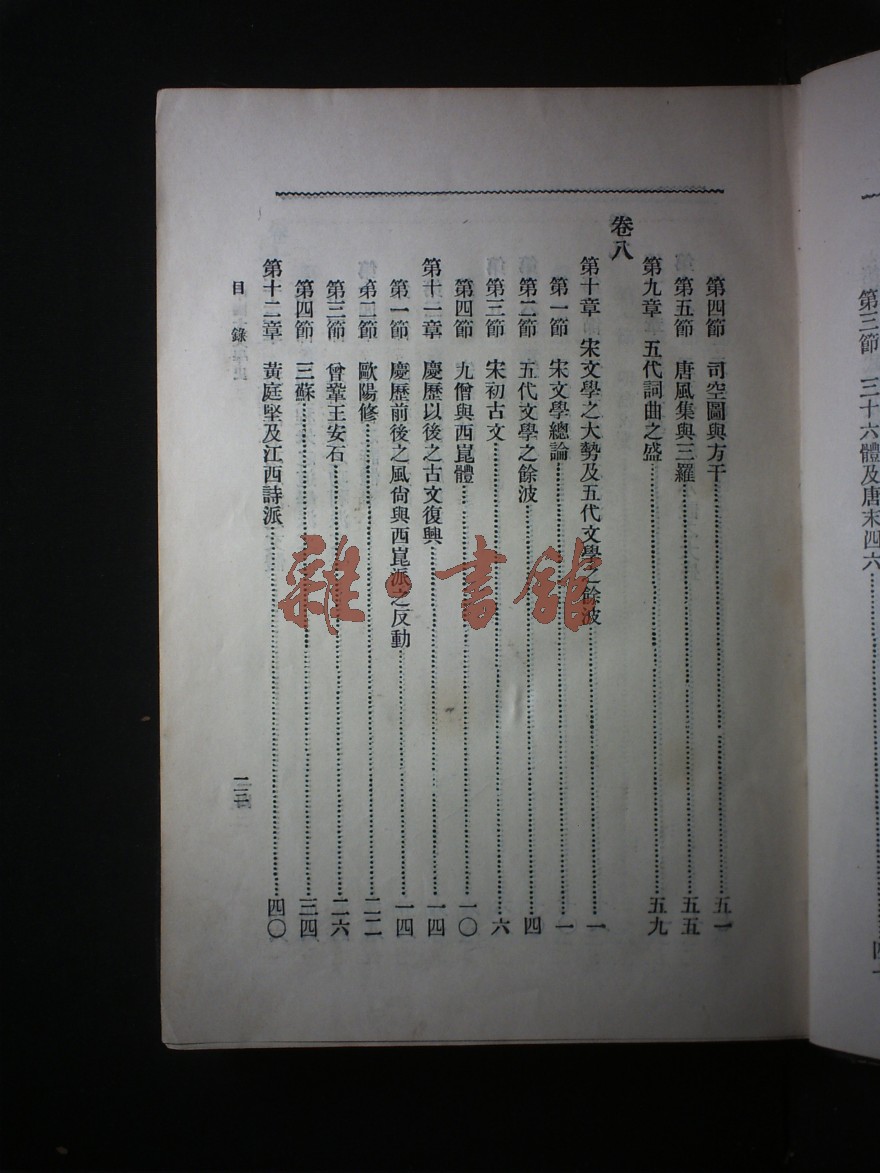 第三節　三十六體及唐末四六……四一
第四節　司空圖與方干……五一
第五節　唐風集與三羅……五五
第九章　五代詞曲之盛……五九
卷八
第十章　宋文學之大勢及五代文學之餘波……一
第一節　宋文學總論……一
第二節　五代文學之餘波……四
第三節　宋初古文……六
第四節　九僧與西崑體……一〇
第十一章　慶歷以後之古文復興……一四
第一節　慶歷前後之風尙與西崑派之反動……一四
第二節　歐陽修……二二
第三節　曾鞏王安石……二六
第四節　三蘇……三四
第十二章　黃庭堅及江西詩派……四〇
目錄
雜書館